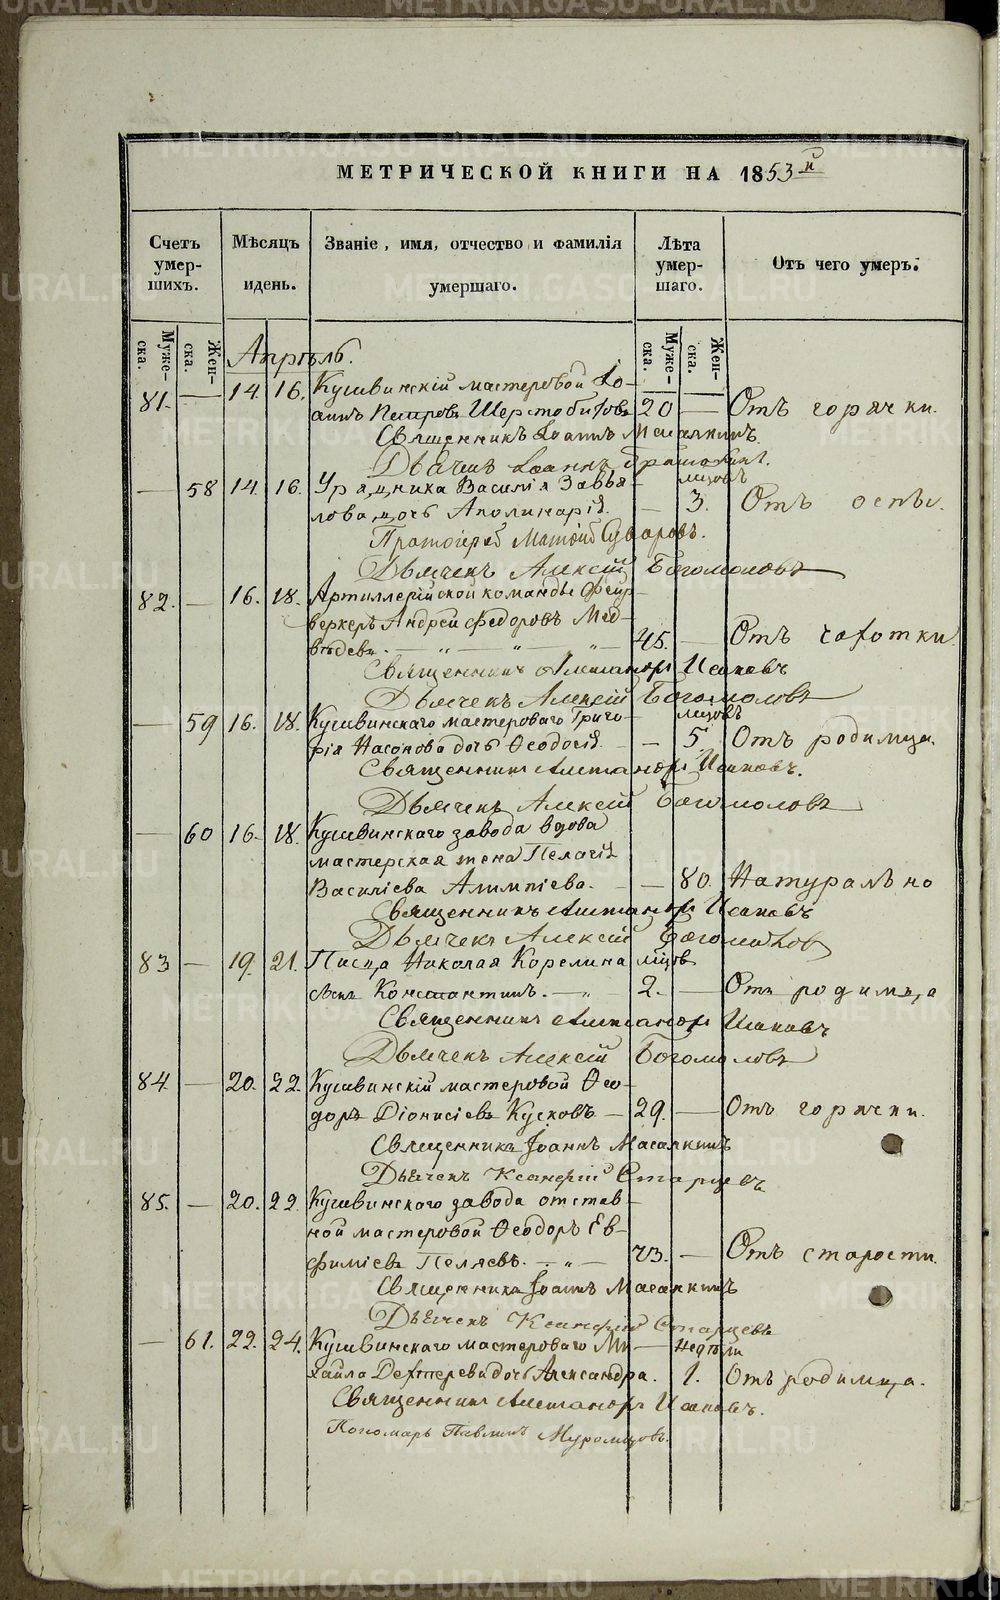 МЕТРИЧЕСКОЙ КНИГИ НА 1853й
Счетъ умер-шихъ. Мѣсяцъ и день. Званіе, имя, отчество и фамилія умершаго. Лѣта умер-шаго. Отъ чего умеръ.
Муже-ска. Жен-ска. Муже-ска. Жен-ска.
Апрѣль.
81. — 14. 16. Кушвинскій мастеровой Іо-
аннъ Петровъ Шерстобитовъ 20 — Отъ горячки.
Священникъ Іоаннъ Масалкинъ.
Дьячекъ Іоаннъ
— 58 14. 16. Урядника Василія Завья- мѣсяцовъ
лова дочь Аполинарія. — 3. Отъ оспы.
Протоіерей Матѳій Суворовъ.
Дьячекъ Алексій Богомоловъ
82. — 16. 18. Артиллерійской команды Фейр-
веркеръ Андрей Федоровъ Мед-
вѣдевъ. — „ — „ — „ — 45. — Отъ чахотки
Священникъ Александръ Исаковъ
Дьячекъ Алексій Богомоловъ
— 59 16. 18. Кушвинскаго мастероваго Григо- мѣсяцовъ
рія Насонова дочь Ѳеодосія. — 5. Отъ родимца.
Священникъ Александръ Исаковъ.
Дьячекъ Алексій Богомоловъ
— 60 16. 18. Кушвинскаго завода вдова
мастерская жена Пелагія
Василіева Алимпіева. — 80. Натурально
Священникъ Александръ Исаковъ
Дьячекъ Алексій Богомоловъ
83 — 19. 21. Писца Николая Корелина мѣсяцовъ
сынъ Константинъ. — „ 2. — Отъ родимца
Священникъ Александръ Исаковъ
Дьячекъ Алексій Богомоловъ
84 — 20. 22. Кушвинскій мастеровой Ѳео-
доръ Діонисіевъ Кусковъ — 29. — Отъ горячки.
Священникъ Іоаннъ Масалкинъ
Дьячекъ Ксанфій Старцевъ
85. — 20. 22. Кушвинскаго завода отстав-
ной мастеровой Ѳеодоръ Ев-
фиміевъ Пеляевъ. — „ — 73. — Отъ старости.
Священникъ Іоаннъ Масалкинъ
Дьячекъ Ксанфій Старцевъ
— 61. 22. 24. Кушвинскаго мастероваго Ми- — недѣли
хаила Дехтерева дочь Александра. 1. Отъ родимца.
Священникъ Александръ Исаковъ.
Пономарь Павлинъ Муромцовъ.
METRIKI.GASO-URAL.RU